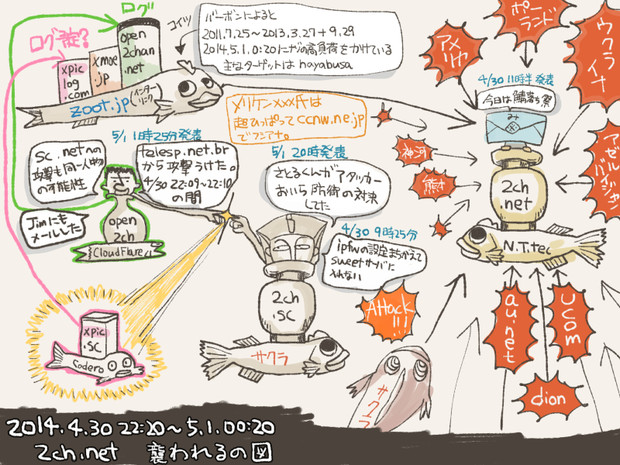 ログ
ログ誌?
open
2chan
.net
xpic
log
.com
xmoe
.jp
コイツ
バーボンによると
2011.7.25~2013.3.27+9.29
2014.5.1.0:20にかけ高負荷をかけている
主なターゲットは hayabusa
zoot.jp
(インター
リンク)
メリケンxxx氏は
超ひっぱって ccnw.ne.jp
でフシアナ。
アメリカ
ポーランド
ウクライナ
アゼルバイジャン
神河
熊本
4/30 11時半 発表
今日は鯖落ち祭
み
2ch
.net
N.T.tec
5/1 11時25分発表
sc.netへの
攻撃も同一人物
の可能性
talesp.net.br
から攻撃うけた。
4/30 22:09~22:10
の間
Jimにも
メールした
open
2ch
CloudFlare
5/1 20時発表
さとるくんがアタッカー
おいら防衛の対決
してた
4/30 9時25分
ipfwの設定まちがえて
sweetサーバに
入れない
2ch
.sc
サクラ
Attack
!!!
サクラ
xpic
.sc
Codero
au.net
UCOM
dion
2014.4.30 22:20~5.1.00:20
2ch.net 襲われるの図